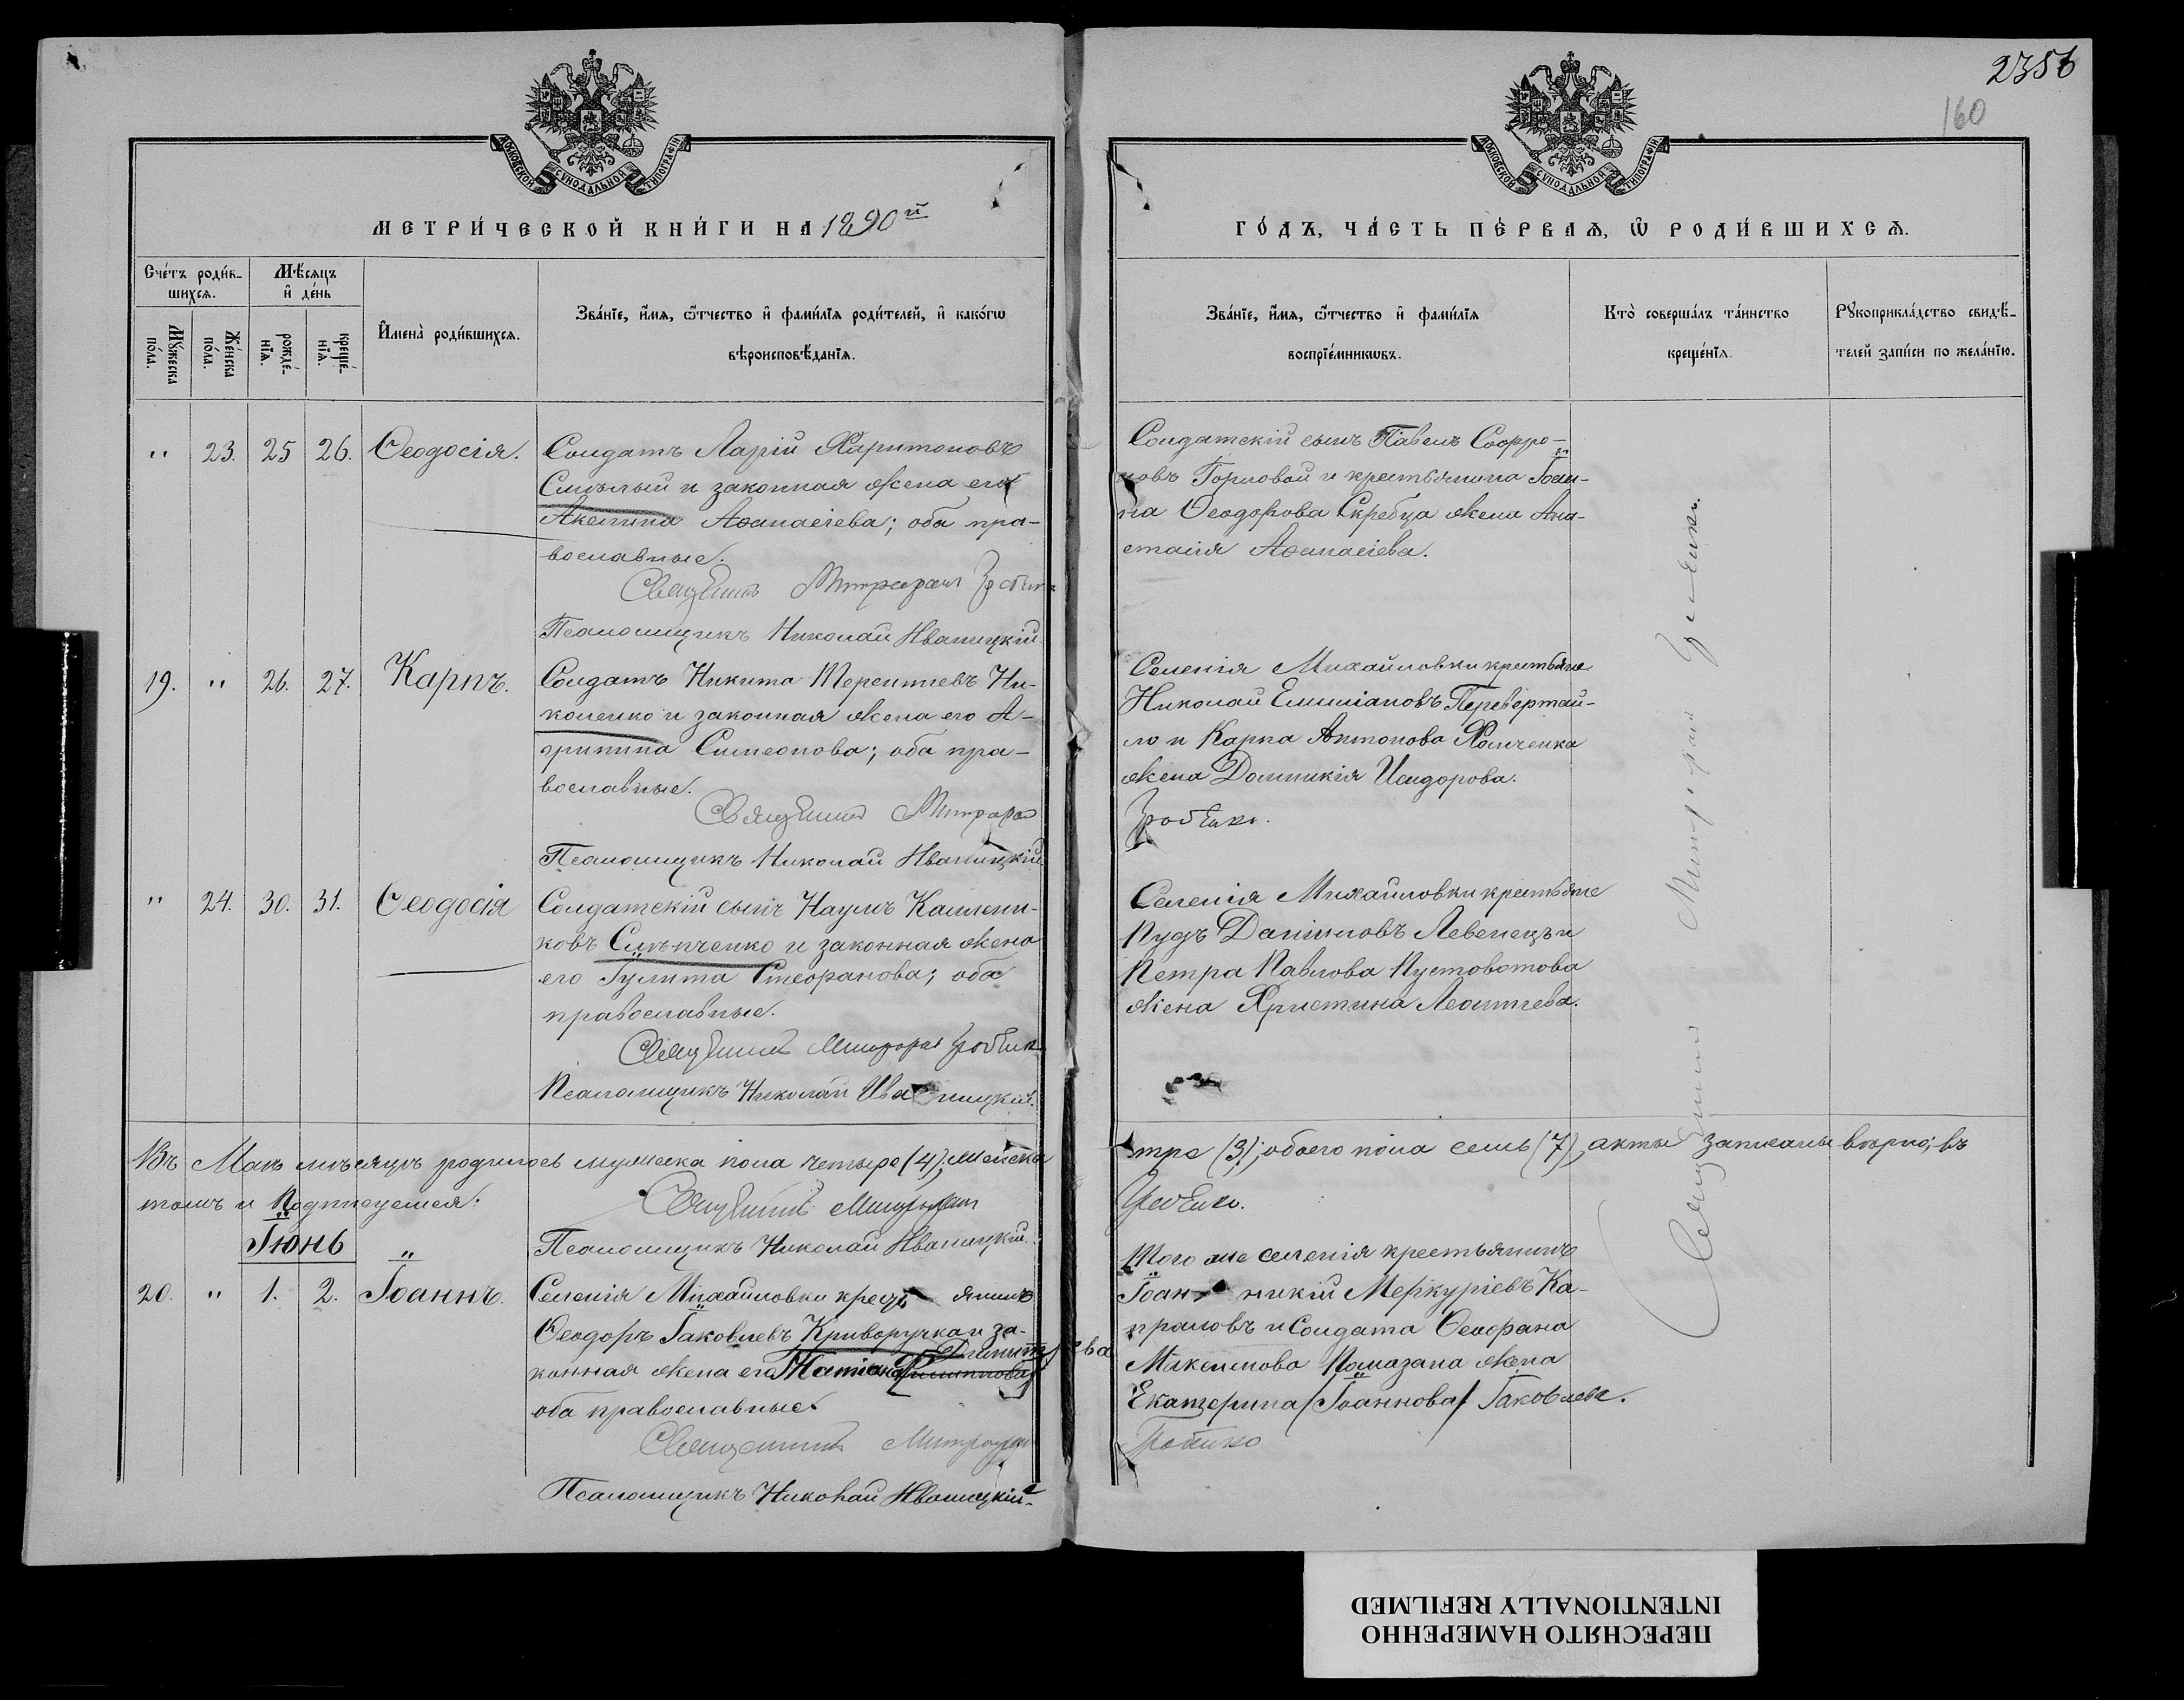 2356
160
МОСКОВСКОЙ СѴНОДАЛЬНОЙ ТИПОГРАФІИ
МОСКОВСКОЙ СѴНОДАЛЬНОЙ ТИПОГРАФІИ
МЕТРИ́ЧЕСКОЙ КНИ́ГИ НА 1890й
ГО́ДЪ, ЧА́СТЬ ПЕ́РВАѦ, Ѡ҆ РОДИ́ВШИХСѦ.
Сче́тъ роди́в-
шихсѧ.
Мѣ́сѧцъ
и҆ де́нь
Мꙋ́жеска по́ла.
Же́нска по́ла.
рожде́-нїѧ.
креще́-нїѧ.
И҆мена̀ роди́вшихсѧ.
Зва́нїе, и҆́мѧ, ѻ҆́тчество и҆ фами́лїѧ роди́телей, и҆ како́гѡ
вѣроисповѣ́данїѧ.
Зва́нїе, и҆́мѧ, ѻ҆́тчество и҆ фами́лїѧ
воспрїе́мникѡвъ.
Кто̀ соверша́лъ та́инство
креще́нїѧ.
Рꙋкоприкла́дство свидѣ́-
телей за́писи по жела́нїю.
" 23. 25 26. Ѳеодосія. Солдатъ Ларій Харитоновъ
Смѣлый и законная жена его
Акелина Аѳанасіева; оба пра-
вославные.
Священникъ Митрофанъ
Псаломщикъ Николай Иваницкій.
Солдатскій сынъ Павелъ Софро-
новъ Горловой и крестьянина Іоан-
на Ѳеодорова Скребца жена Ана-
стасія Аѳанасіева.
19. " 26. 27. Карпъ. Солдатъ Никита Терентіевъ Ни-
коленко и законная жена его А-
грипина Симеонова; оба пра-
вославные.
Священникъ Митрофан
Псаломщикъ Николай Иваницкій.
Селенія Михайловки крестьяне
Николай Емиліановъ Перевертай-
ло и Карпа Антонова Халченка
жена Домникія Исидорова.
" 24. 30. 31. Ѳеодосія Солдатскій сынъ Наумъ Каллени-
ковъ Слѣпченко и законная жена
его Іулита Стефанова; оба
православные.
Священникъ Митрофан
Псаломщикъ Николай Иваницкій.
Селенія Михайловки крестьяне
Пудъ Даніиловъ Левенецъ и
Петра Павлова Пустовотова
жена Христина Леонтіева.
Въ Маѣ мѣсяцѣ родилось мужеска пола четыре (4); женска
три (3); обоего пола семь (7), акты записаны вѣрно; въ
томъ и подписуемся:
Священникъ Митрофан
Псаломщикъ Николай Иваницкій.
Іюнь "
20. " 1. 2. Іоаннъ. Селенія Михайловки крестьянинъ
Ѳеодоръ Іаковлевъ Криворучка и за-
Димитріева
конная жена его Татіана (Филиппова)
оба православные.
Священникъ Митрофан
Псаломщикъ Николай Иваницкій.
Того же селенія крестьянинъ
Іоанникій Меркуріевъ Ка-
праловъ и Солдата Ѳеофана
Максимова Помазана жена
Екатерина (Іоаннова) Іаковлева.
Священникъ Митрофан
ПЕРЕСНЯТО НАМЕРЕННО
INTENTIONALLY REFILMED